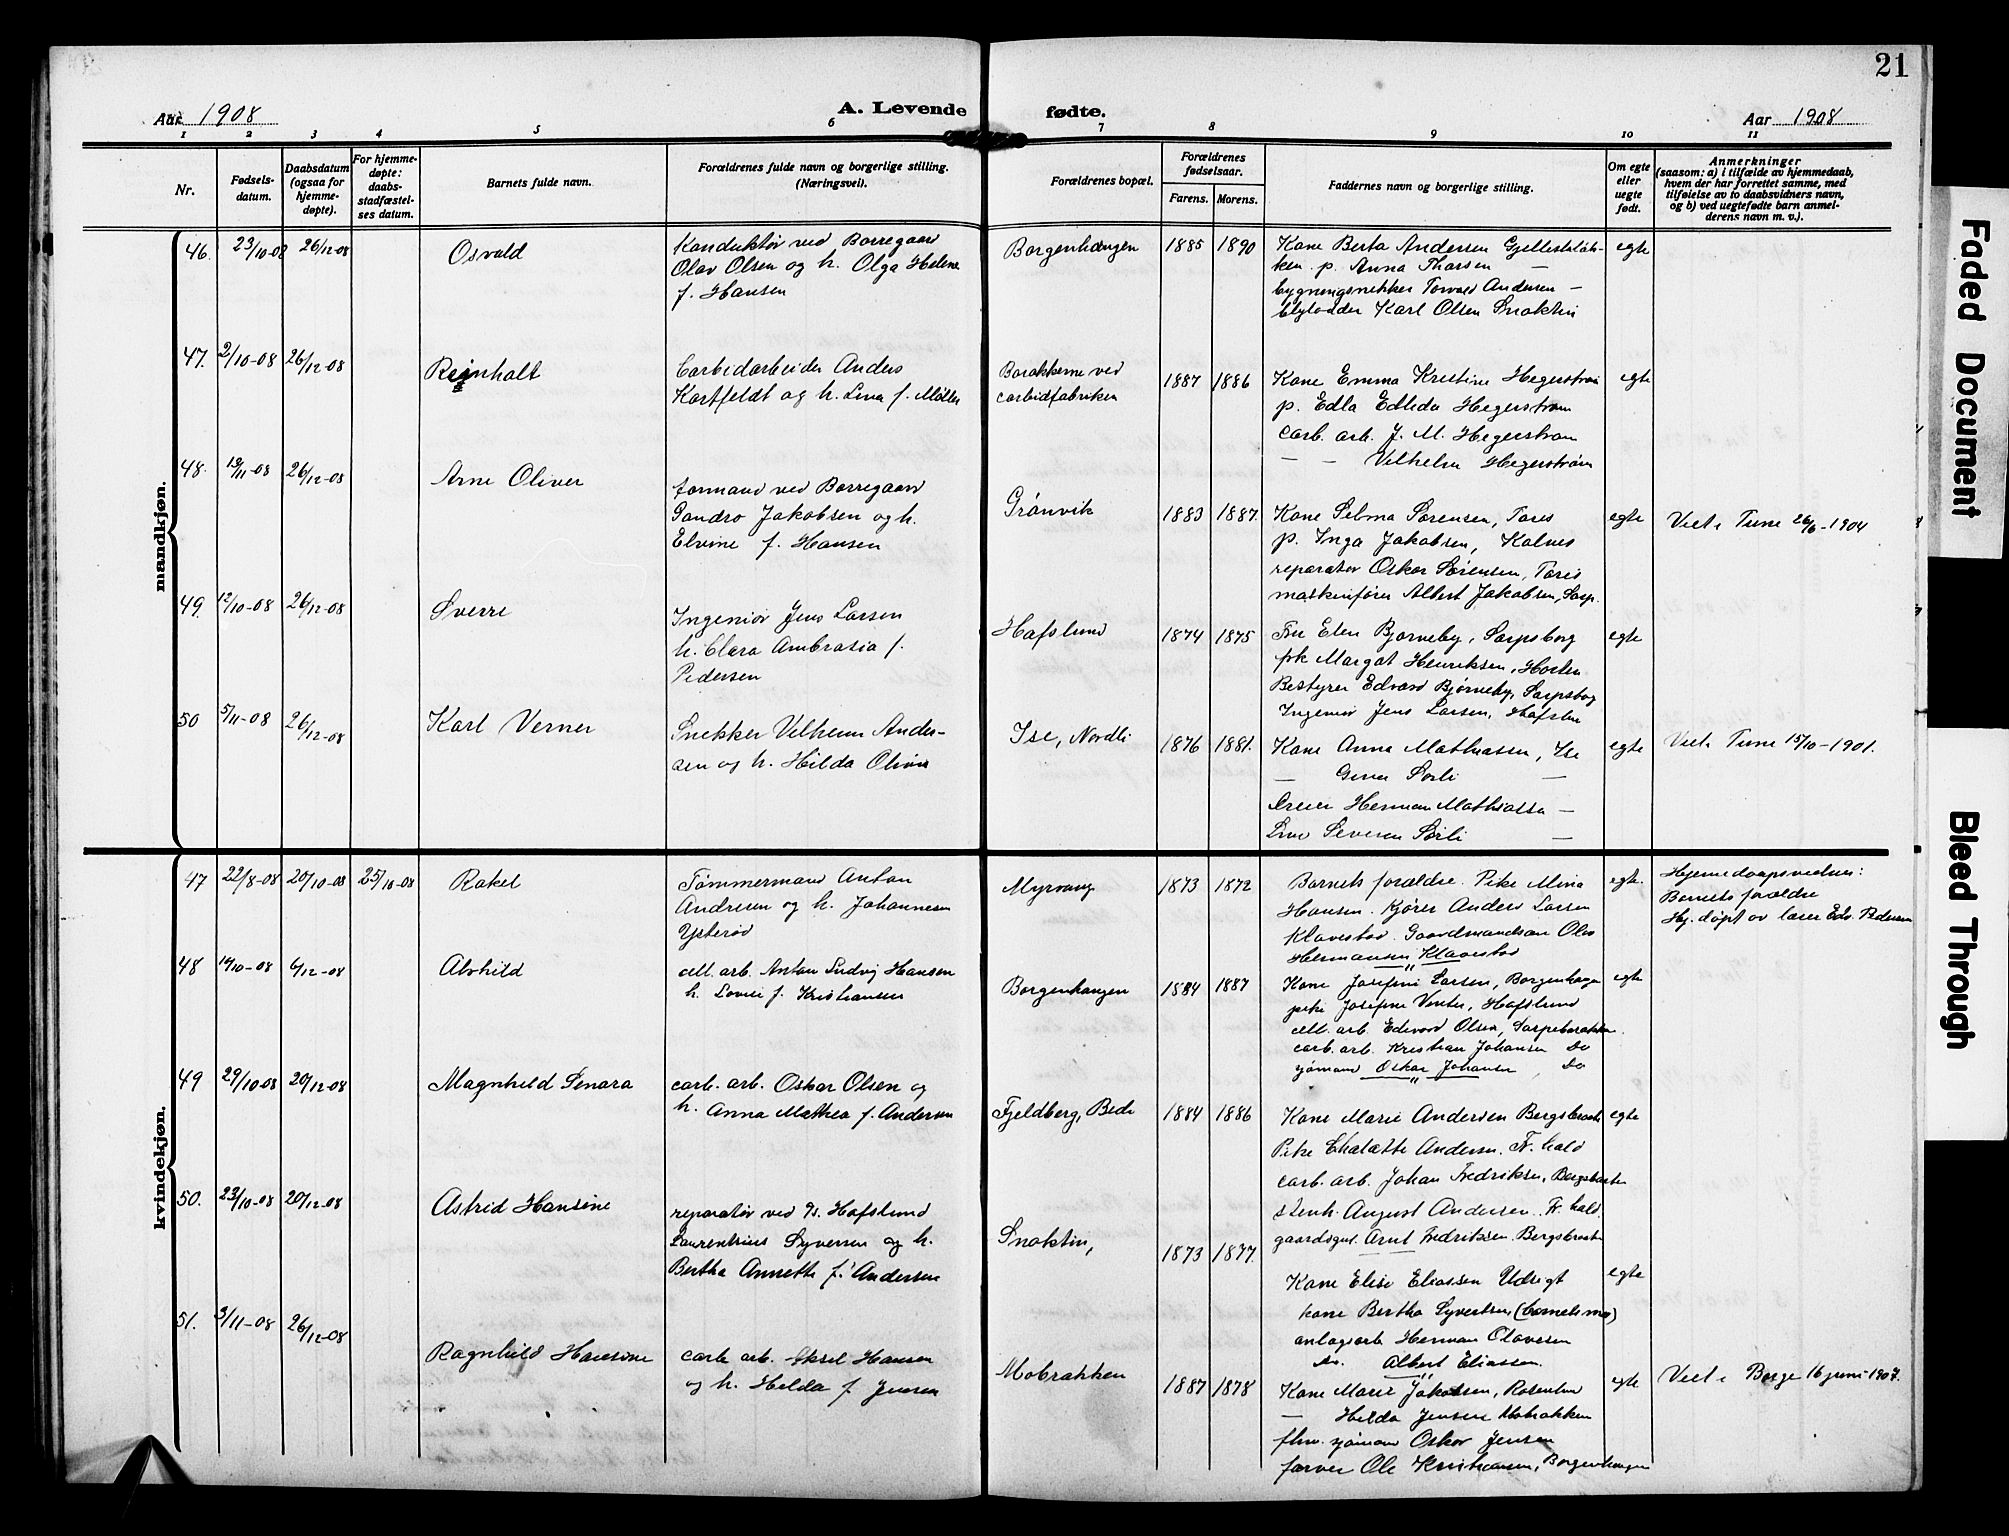 21
Aar 1908
A. Levende fødte.
Aar 1908
1 2 3 4 5 6 7 8 9 10 11
Nr.
Fødsels-
datum.
Daabsdatum
(ogsaa for
hjemme-
døpte).
For hjemme-
døpte:
daabs-
stadfæstel-
ses datum.
Barnets fulde navn.
Forældrenes fulde navn og borgerlige stilling.
(Næringsvei).
Forældrenes bopæl.
Forældrenes
fødselsaar.
Farens. Morens.
Faddernes navn og borgerlige stilling.
Om egte
eller
uegte
født.
Anmerkninger
(saasom: a) i tilfælde av hjemmedaab,
hvem der har forrettet samme, med
tilføielse av to daabsvidners navn,
og b) ved uegtefødte barn anmel-
derens navn m. v.).
mandkjøn.
46. 23/10-08 26/12-08
Osvald
Konduktør ved Borregaard
Olav Olsen og h. Olga Helene
f. Hansen
Borgenhaugen
1885 1890
Kone Berta Andersen
p. Anna Thorsen —
bygningsnekker Torvald Andersen —
Karl Olsen Snoktin
egte
47. 2/10-08 26/12-08
Reinholt
Carbidarbeider Anders
Kortfeldt og h. Lina f. Møller
Barakkerne ved
carbidfabriken
1887 1886
Kone Emma Kristine Hegerstrøm
p. Edla Edleda Hegerstrøm
carb. arb. J. M. Hegerstrøm
— — Vilhelm Hegerstrøm
egte
48. 13/11-08 26/12-08
Arne Oliver
formand ved Borregaard
Sandro Jakobsen og h.
Elvine f. Hansen
Grønvik
1883 1887.
Kone Selma Sørensen, Tores
p. Inga Jakobsen, Kalnes
reparatør Oskar Sørensen, Tores
maskinfører Albert Jakobsen, Sarp.
egte
Viet i Tune 26/6-1904
49. 12/10-08 26/12-08
Sverre
Ingeniør Jens Larsen
h. Clara Ambrosia f.
Pedersen
Hafslund
1874 1875
Fru Elen Bjørneby, Sarpsborg
frk Margot Henriksen, Horten
Bestyrer Edvard Bjørneby, Sarpsborg
Ingeniør Jens Larsen, Hafslu
egte
50 5/11-08 26/12-08
Karl Verner
Snekker Vilhelm Ander-
sen og h. Hilda Olivia
Ise, Nordli
1876 1881.
Kone Anna Mathiassen, Ise
— Gina Sørli —
Herman Mathiassen —
Severin Sørli —
egte
Viet i Tune 15/10-1901.
kvindekjøn.
47 22/8-08 20/10-08 25/10-08
Rakel
Tømmermand Anton
Andresen og h. Johannesen
Ysterød
Myrvang
1873 1872
Barnets forældre. Pike Mina
Hansen. Kjører Anders Larsen
Klavestad. Gaardmandsøn Olav
Hermansen Klavestad
egte.
Hjemmedaapsvidner:
Barnets forældre
Hj. døpt av lærer Edv. Pedersen
48 14/10-08 6/12-08
Alvhild
cell. arb. Anton Ludvig Hansen
h. Lovise f. Kristiansen
Borgenhaugen
1884 1887
Kone Josefine Larsen, Borgenhaugen
pike Josefine Venter, Hafslund
cell. arb. Edvard Olsen, Sarpebrakken.
carb. arb. Kristian Johansen Do
sjømand Oskar Johansen, Do
egte
49 29/10-08 20/12-08
Magnhild Senora
carb. arb. Oskar Olsen og
h. Anna Mathea f. Andersen
Fjeldberg, Bede
1884 1886
Kone Marie Andersen Bergsbraate
Pike Chalotte Andersen. Fr. hald
carb. arb. Johan Fredriksen, Bergsbraate
stenh. August Andersen. Fr. hald.
gaardsgut. Arnt Fredriksen. Bergsbraate
egte
50. 23/10-08 20/12-08
Astrid Hansine
reparatør ved Hafslund
Laurentsius Syversen og h.
Bertha Annette f. Andersen
Snoktin,
1873 1877.
Kone Elise Eliassen Udsigt
kone Bertha Syvertsen (barnets mor)
anlagsarb Herman Olavesen
do. Albert Eliassen.
egte
51. 3/11-08 26/12-08
Ragnhild Hansine
carb arb. Aksel Hansen
og h. Hilda f. Jensen
Mobrakken
1887 1878
Kone Marie Jakobsen, Rosenlun
— Hilda Jensen Mobrakken
fhv. sjømand Oskar Jensen
farver Ole Kristiansen, Borgenhaugen
egte
Viet i Borge 16 juni-1907.
Faded Document
Bleed Through